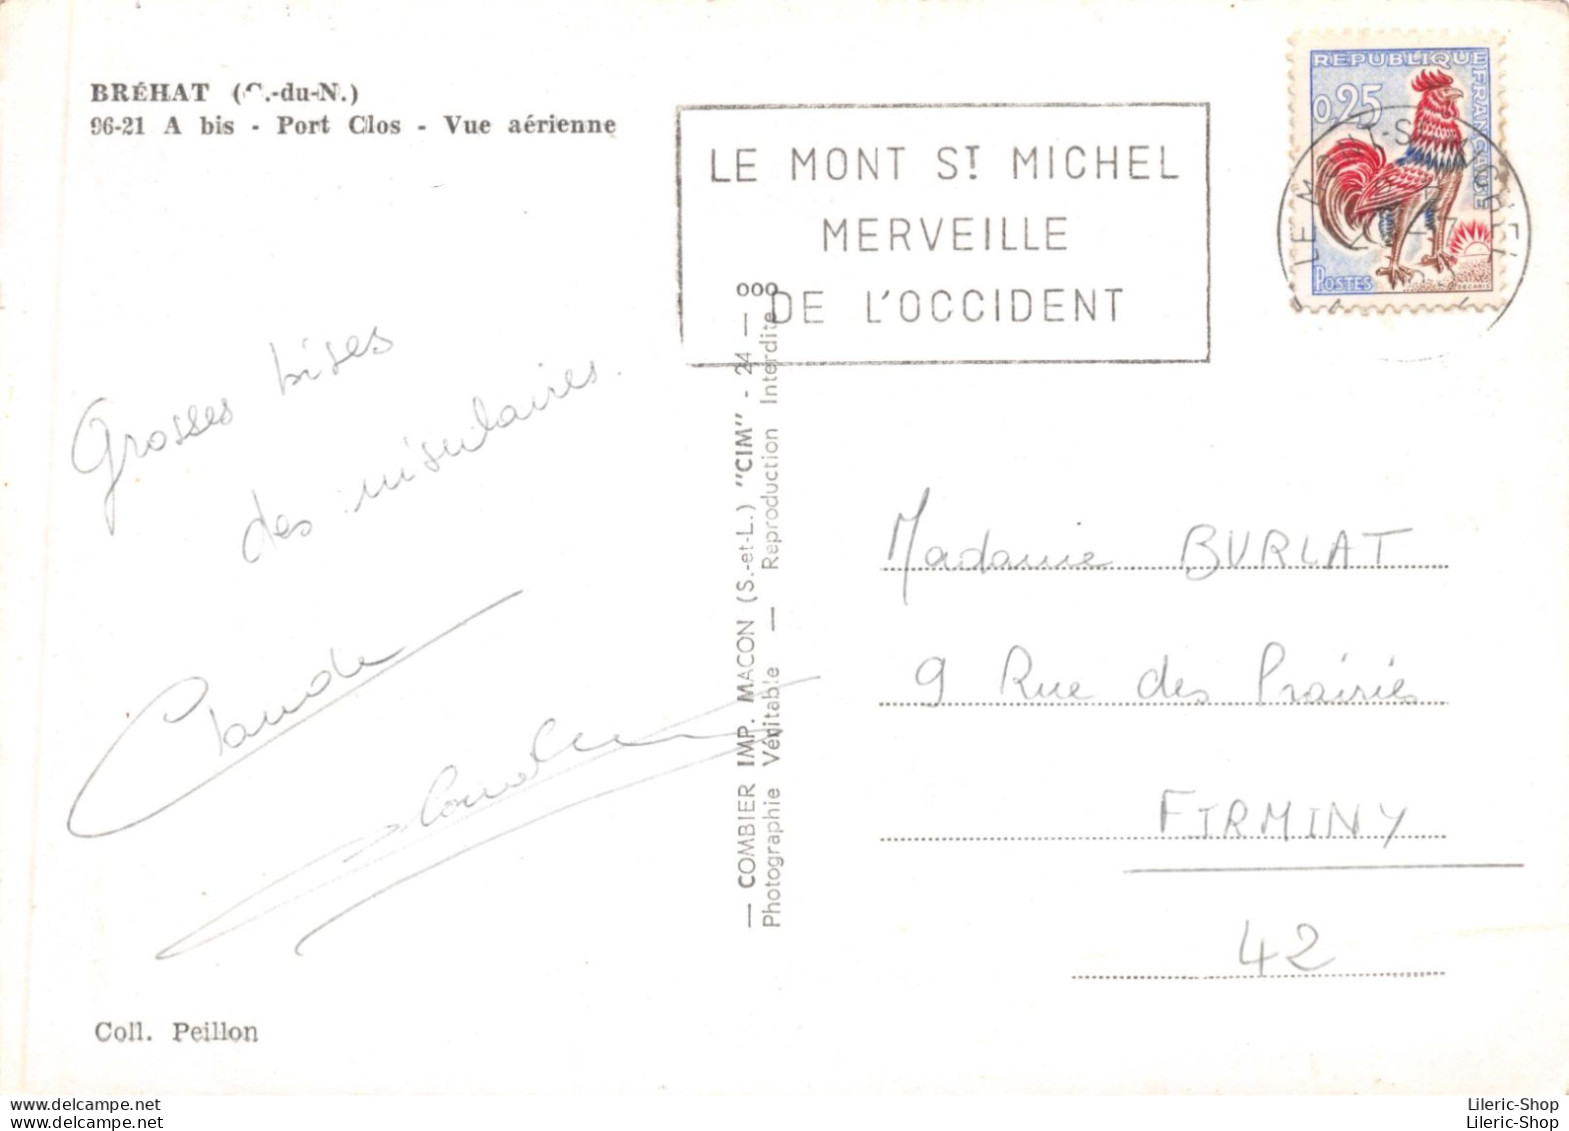 BRÉHAT (C.-du-N.)
96-21 A bis - Port Clos - Vue aérienne
LE MONT ST MICHEL
MERVEILLE
DE L'OCCIDENT
REPUBLIQUE FRANÇAISE
0,25
POSTES
DECARIS
LE MONT-ST-MICHEL
Grosses bises
des insulaires.
Claude
— COMBIER IMP. MACON (S.-et-L.) "CIM" - 24 — ooo
Photographie Véritable — Reproduction Interdite
Madame BURLAT
9 Rue des Prairies
FIRMINY
42
Coll. Peillon
Lileric-Shop
Lileric-Shop
Lileric-Shop
Lileric-Shop